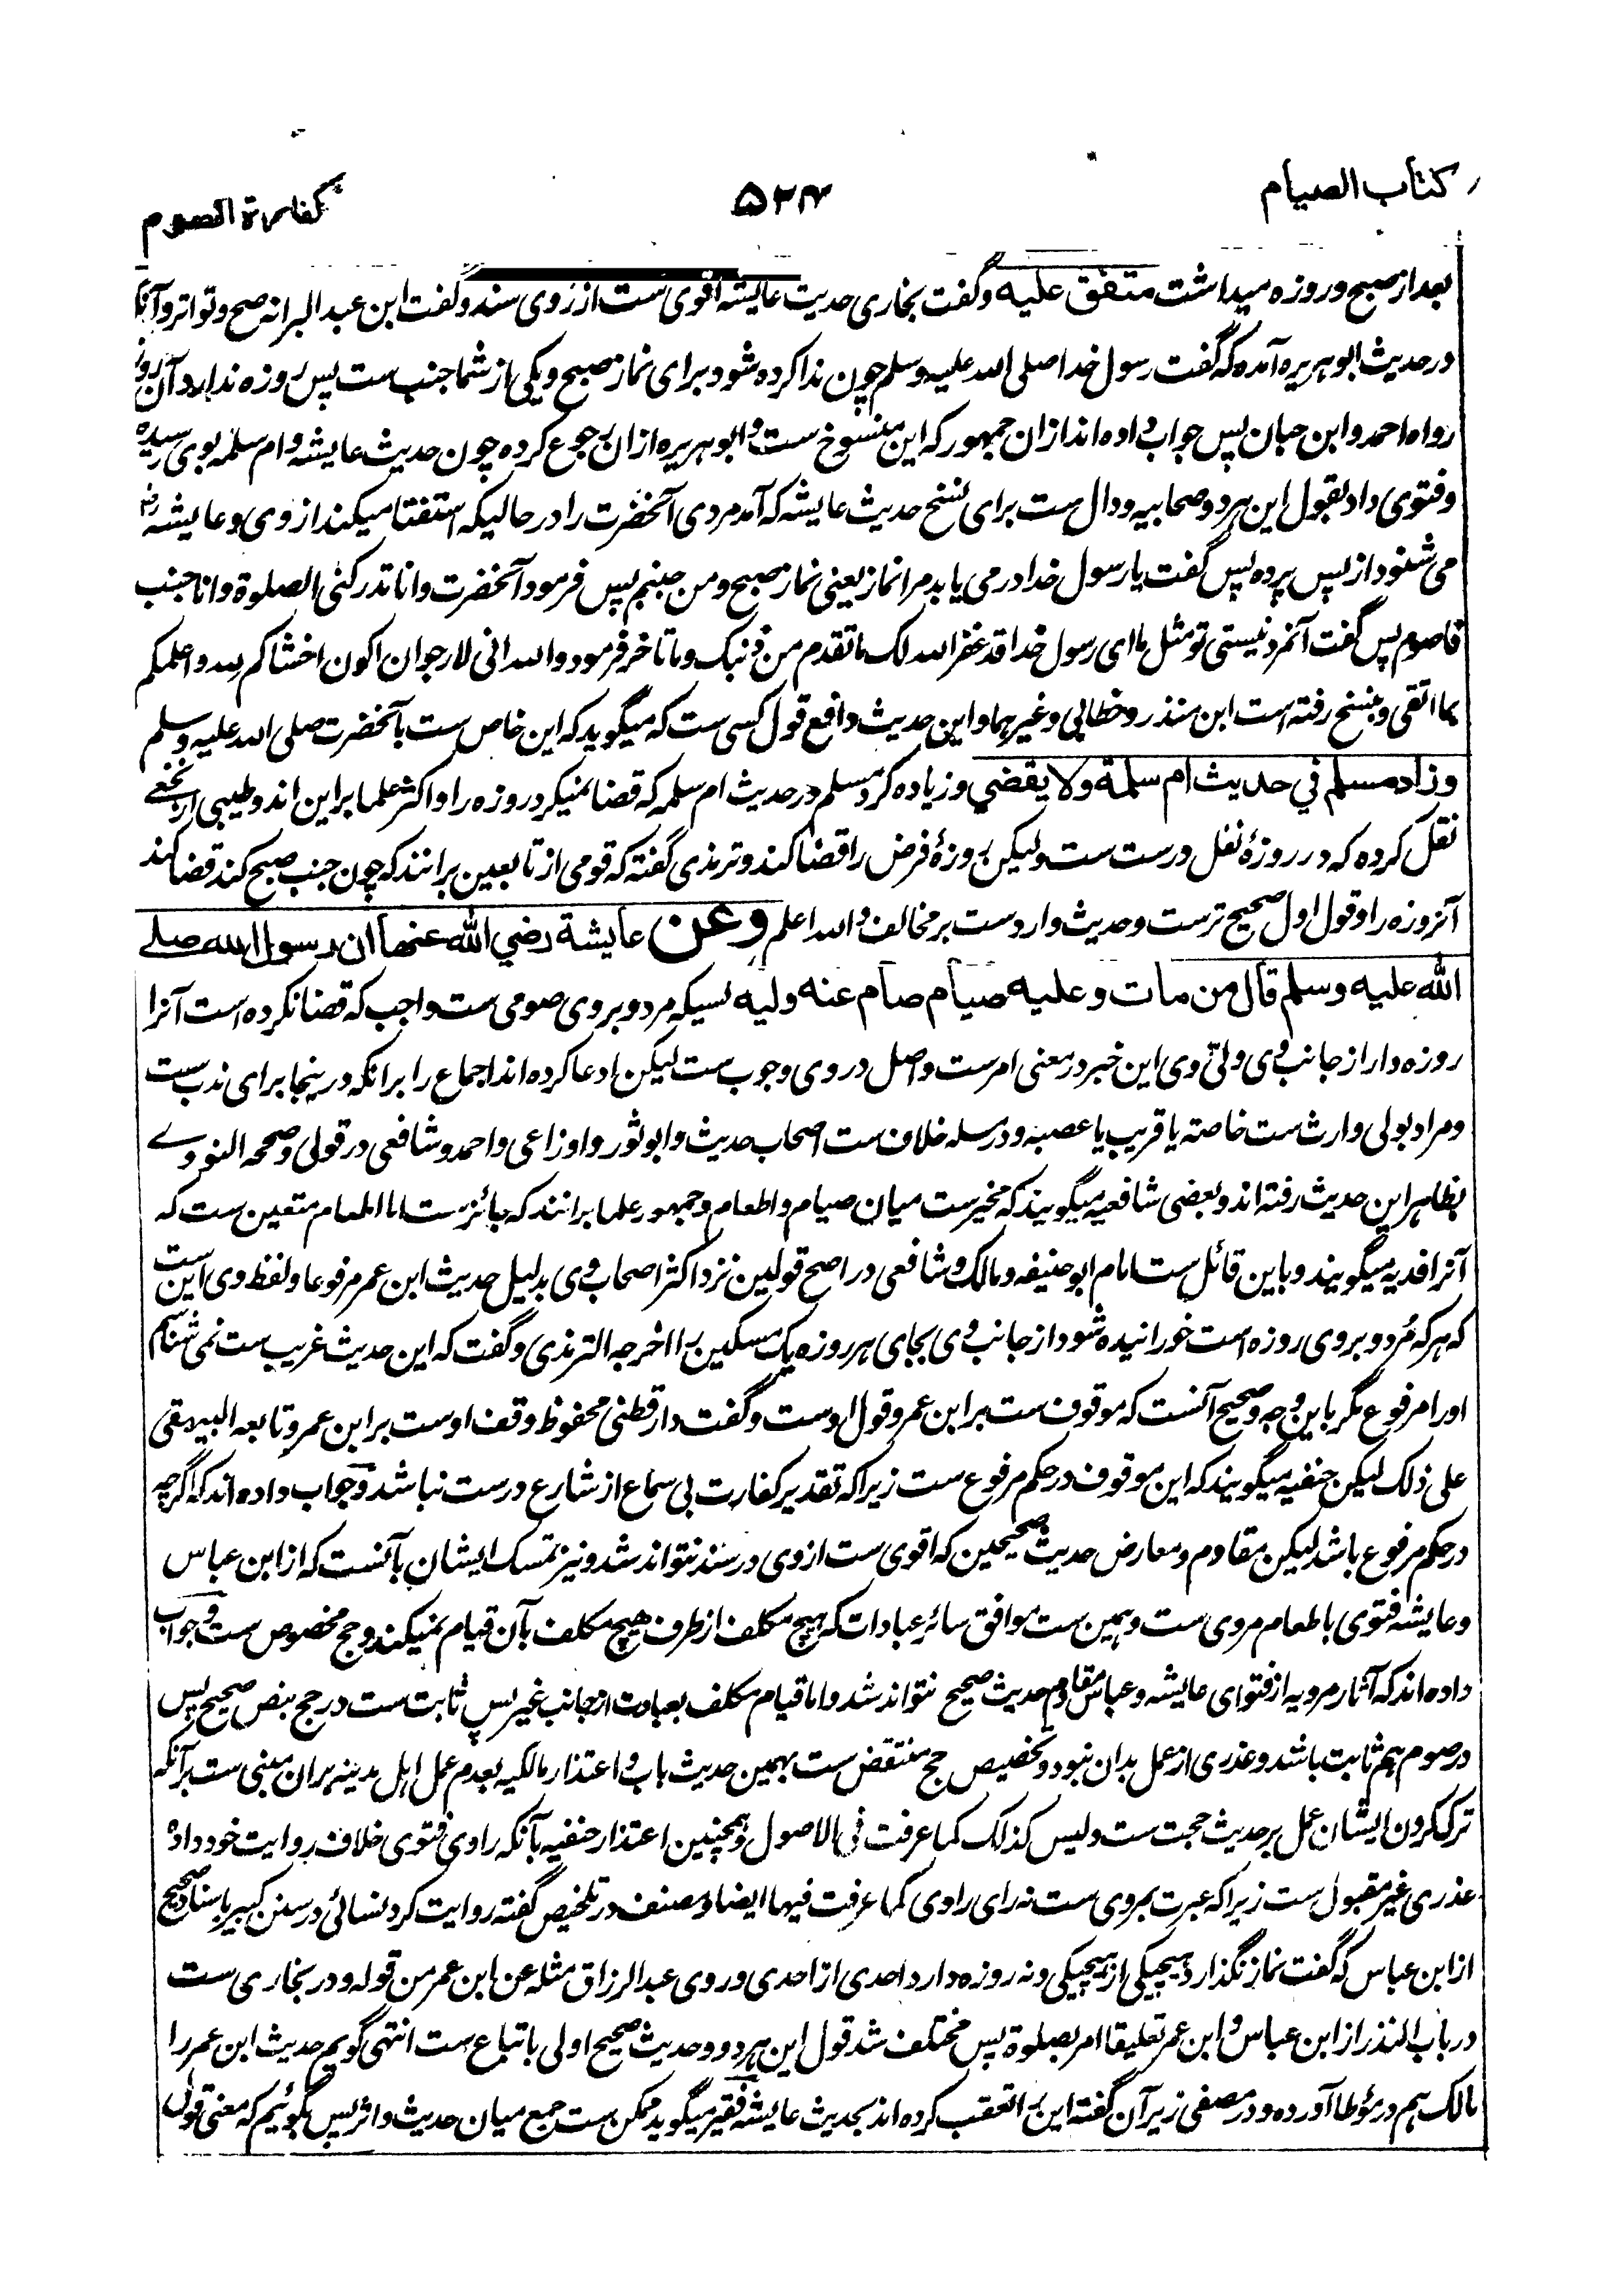 کتاب الصیام
۵۲۴
کفارة الصوم
بعد از صبح و روزه میداشت متفق علیه و گفت بخاری حدیث عایشه اقوی ست از روی سند و گفت ابن عبد البر انه صح و تواتر و آنکه
در حدیث ابو هریره آمده که گفت رسول خدا صلی الله علیه وسلم چون ندا کرده شود برای نماز صبح و یکی از شما جنب ست پس روزه ندارد آن روز
رواه احمد و ابن حبان پس جواب داده اند از ان جمهور که این منسوخ ست و ابو هریره از ان رجوع کرده چون حدیث عایشه و ام سلمه بوی رسیده
و فتوی داد بقول این هر دو صحابیه و دال ست برای نسخ حدیث عایشه که آمد مردی آنحضرت را در حالیکه استفتا میکند از وی و عایشه رض
می شنود از پس پرده پس گفت یا رسول خدا در می یابد مرا نماز یعنی نماز صبح و من جنبم پس فرمود آنحضرت و انا تدرکنی الصلوة و انا جنب
فاصوم پس گفت آنمرد نیستی تو مثل ما ای رسول خدا قد غفر الله لک ما تقدم من ذنبک و ما تاخر فرمود والله انی لارجو ان اکون اخشاکم لله و اعلمکم
بما اتقی و بنسخ رفته است ابن منذر و خطابی و غیرهما و این حدیث دافع قول کسی ست که میگوید که این خاص ست بآنحضرت صلی الله علیه وسلم
وزاد مسلم في حدیث ام سلمة ولا یقضي و زیاده کرد مسلم در حدیث ام سلمه که قضا نمیکرد روزه را و اکثر علما بر این اند و طیبی از نخعی
نقل کرده که در روزۀ نفل درست ست ولیکن روزۀ فرض را قضا کند و ترمذی گفته که قومی از تابعین برانند که چون جنب صبح کند قضا کند
آنروزه را و قول اول صحیح ترست و حدیث وارد ست بر مخالف والله اعلم وعن عایشة رضي الله عنها ان رسول الله صلے
الله علیه وسلم قال من مات و علیه صیام صام عنه ولیه کسیکه مرد و بروی صومی ست واجب که قضا نکرده است آنرا
روزه دارد از جانب وی ولیّ وی این خبر در معنی امر ست و اصل در وی وجوب ست لیکن ادعا کرده اند اجماع را برانکه در ینجا برای ندب ست
و مراد بولی وارث ست خاصته یا قریب یا عصبه و در مسئله خلاف ست اصحاب حدیث و ابو ثور و اوزاعی و احمد و شافعی در قولی و صححه النووے
بظاهر این حدیث رفته اند و بعضی شافعیه میگویند که مخیر ست میان صیام و اطعام و جمهور علما برانند که جائز ست اما اطعام متعین ست که
آنرا فدیه میگویند و باین قائل ست امام ابو حنیفه و مالک و شافعی در اصح قولین نزد اکثر اصحاب وی بدلیل حدیث ابن عمر مرفوعا و لفظ وی این ست
که هر که مُرد و بروی روزه است خورانیده شود از جانب وی بجای هر روزه یک مسکین را اخرجه الترمذی و گفت که این حدیث غریب ست نمی شناسم
اورا مرفوع مگر باین وجه و صحیح آنست که موقوف ست بر ابن عمر و قول اوست و گفت دارقطنی محفوظ وقف اوست بر ابن عمر و تابعه البیهقی
علی ذلک لیکن حنفیه میگویند که این موقوف در حکم مرفوع ست زیرا که تقدیر کفارت بی سماع از شارع درست نباشد و جواب داده اند که اگرچه
در حکم مرفوع باشد لیکن مقاوم و معارض حدیث صحیحین که اقوی ست از وی در سند نتواند شد و نیز تمسک ایشان بآنست که از ابن عباس
و عایشه فتوی باطعام مروی ست و همین ست موافق سائر عبادات که هیچ مکلف از طرف هیچ مکلف بآن قیام نمیکند و حج مخصوص ست و جواب
داده اند که آثار مرویه از فتوای عایشه و عباس مقاوم حدیث صحیح نتواند شد و اما قیام مکلف بعبادت از جانب غیر پس ثابت ست در حج بنص صحیح پس
در صوم هم ثابت باشد و عذری از عمل بدان نبود و تخصیص حج منتقض ست بهمین حدیث باب و اعتذار مالکیه بعدم عمل اهل مدینه بران مبنی ست بر آنکه
ترک کردن ایشان عمل بر حدیث حجت ست و لیس کذلک کما عرفت فی الاصول و همچنین اعتذار حنفیه بآنکه راوی فتوی خلاف روایت خود داده
عذری غیر مقبول ست زیرا که عبرت بمروی ست نه رای راوی کما عرفت فیها ایضا و مصنف در تلخیص گفته روایت کرد نسائی در سنن کبیر باسناد صحیح
از ابن عباس که گفت نماز نگذارد هیچیکی از هیچیکی و نه روزه دارد احدی از احدی و روی عبد الرزاق مثله عن ابن عمر من قوله و در بخاری ست
در باب النذر از ابن عباس و ابن عمر تعلیقا امر بصلوة پس مختلف شد قول این هر دو و حدیث صحیح اولی باتباع ست انتهی گویم حدیث ابن عمر را
مالک هم در مؤطا آورده و در مصفی زیر آن گفته این را تعقب کرده اند بحدیث عایشه فقیر میگوید ممکن ست جمع میان حدیث و اثر پس بگوئیم که معنی قول